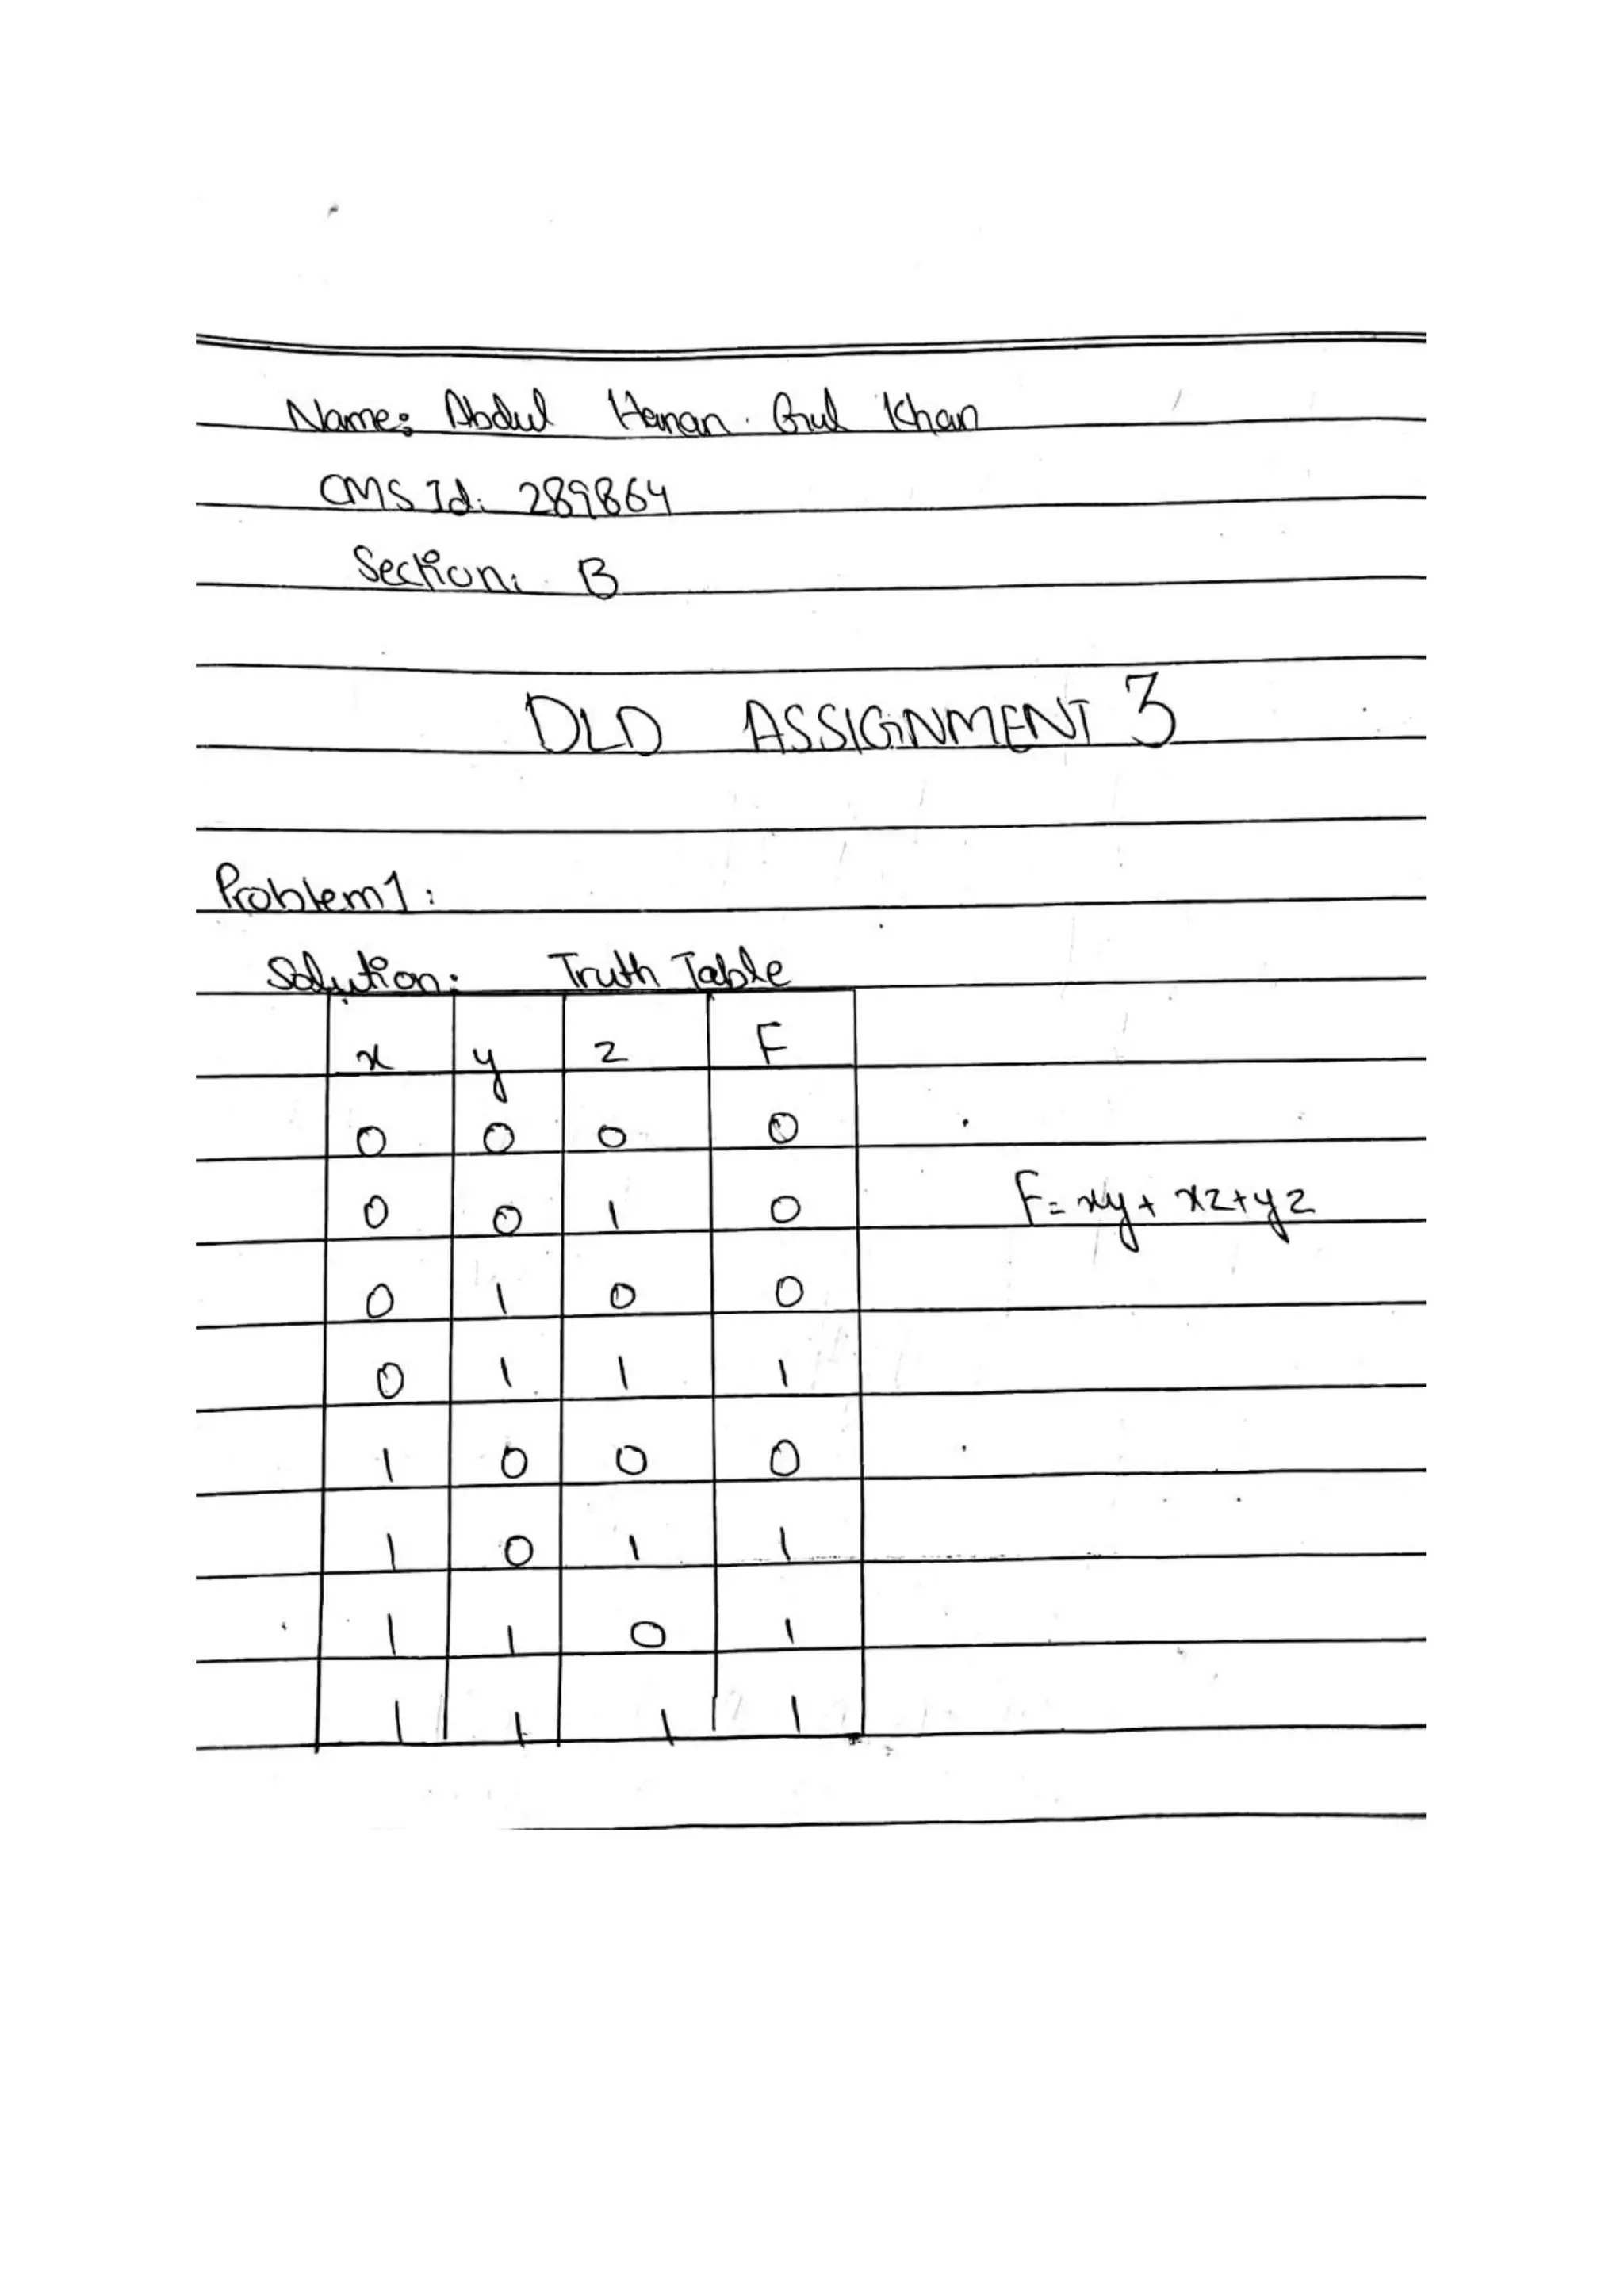 Name: Abdul Hanan Gul Khan
CMS Id: 289864
Section: B
DLD ASSIGNMENT 3
Problem 1:
Solution: Truth Table
x y z F
0 0 0 0
0 0 1 0
F = xy + xz + yz
0 1 0 0
0 1 1 1
1 0 0 0
1 0 1 1
1 1 0 1
1 1 1 1